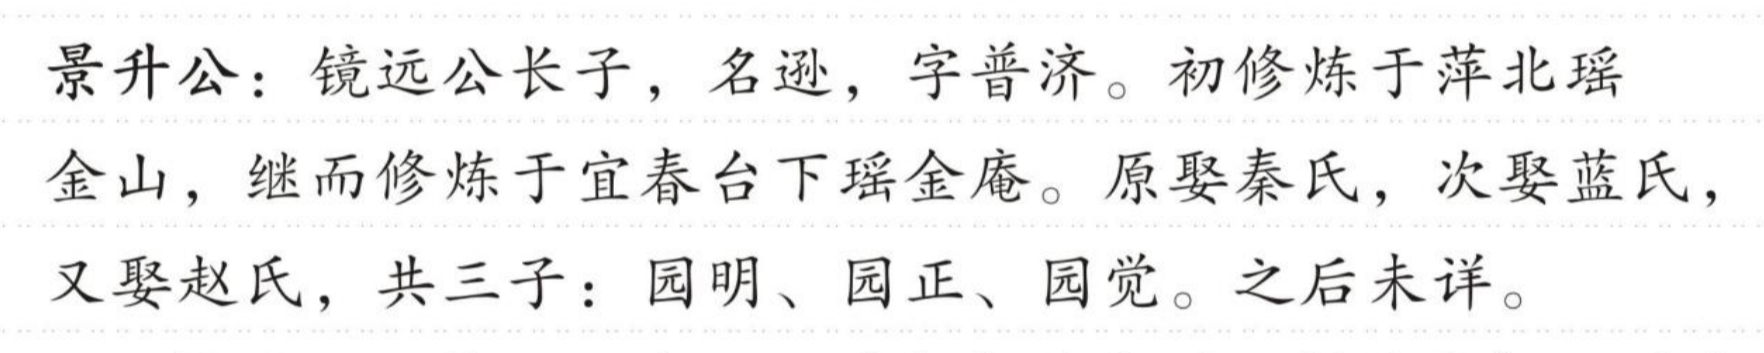 景升公：镜远公长子，名逊，字普济。初修炼于萍北瑶
金山，继而修炼于宜春台下瑶金庵。原娶秦氏，次娶蓝氏，
又娶赵氏，共三子：园明、园正、园觉。之后未详。